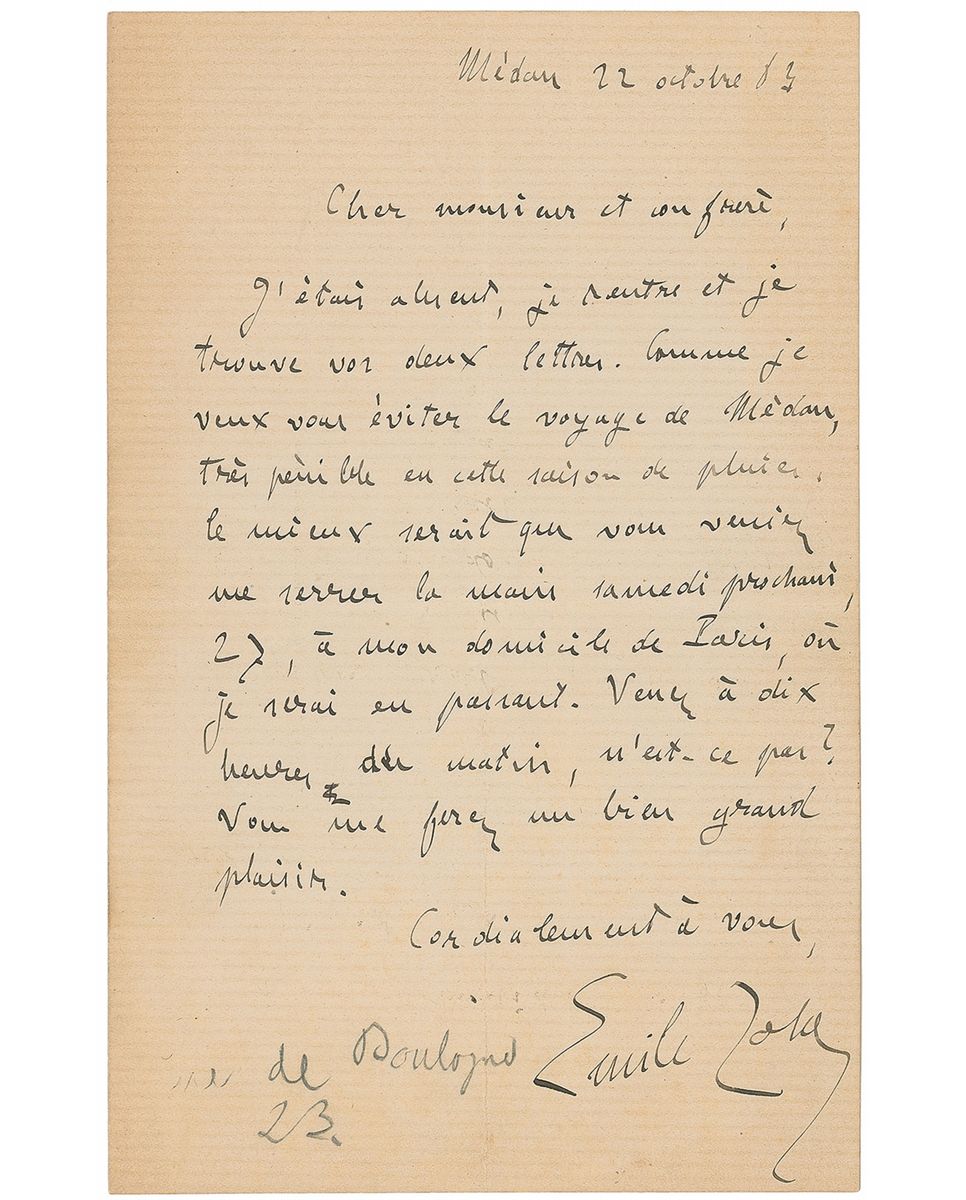 Médan 22 octobre 83
Cher monsieur et confrère,
J'étais absent, je rentre et je
trouve vos deux lettres. Comme je
veux vous éviter le voyage de Médan,
très pénible en cette saison de pluies,
le mieux serait que vous veniez
me serrer la main samedi prochain,
27, à mon domicile de Paris, où
je serai en passant. Venez à dix
heures du matin, n'est-ce pas?
Vous me ferez un bien grand
plaisir.
Cordialement à vous,
Emile Zola
rue de Boulogne
23.